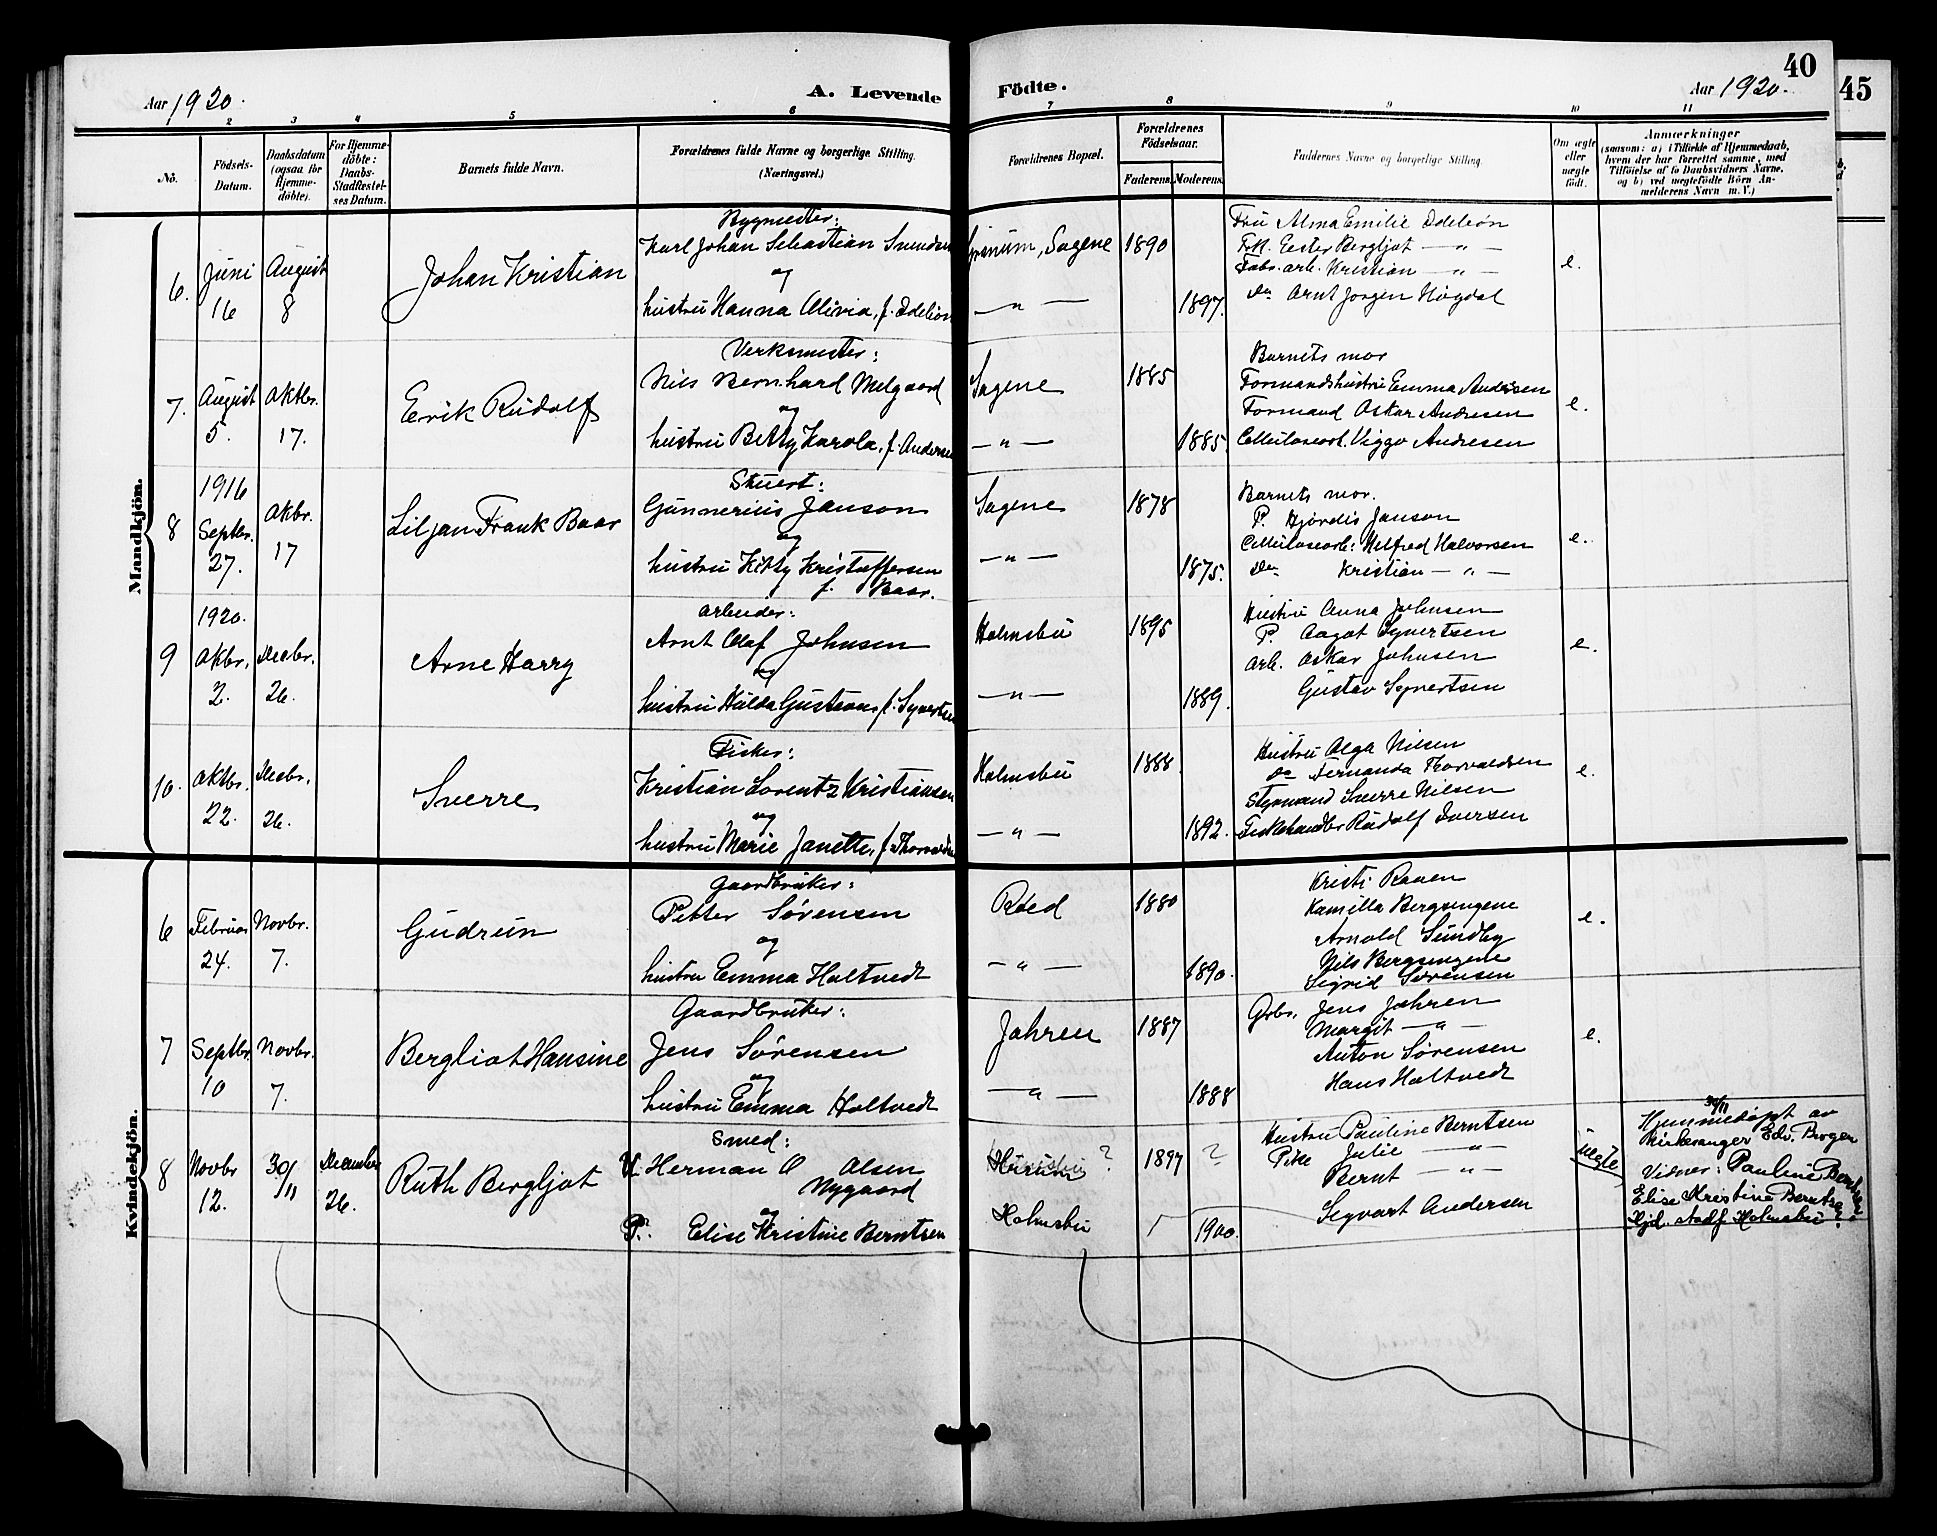 40
45
Aar 1920.
A. Levende
Födte.
Aar 1920.
2
3
4
5
6
7
8
9
10
11
No.
Födsels-
Datum.
Daabsdatum
(ogsaa for
Hjemme-
döbte).
For Hjemme-
döbte:
Daabs-
Stadfæstel-
ses Datum.
Barnets fulde Navn.
Forældrenes fulde Navne og borgerlige Stilling.
(Næringsvei.)
Forældrenes Bopæl.
Forældrenes
Födselsaar.
Faderens.
Moderens.
Faddernes Navne og borgerlig Stilling.
Om ægte
eller
uægte
født.
Anmærkninger
(saasom: a) i Tilfælde af Hjemmedaab,
hvem der har forrettet samme, med
Tilføielse af to Daabsvidners Navne,
og b) ved uægtefödte Börn An-
melderens Navn m. V.)
Mandkjön.
6.
Juni
16
August
8
Johan Kristian
Bygmester:
Karl Johan Sebastian Svendsen
og
hustru Hanna Olivia, f. Edeleon
Sagene
— " —
1890
1897.
Fru Alma Emilie Edeleon
Frk. Ester Bergljot — " —
Fabr. arb. Kristian — " —
Do Arnt Jørgen Høgdal
e.
7.
August
5.
Oktbr.
17.
Eerik Rudolf
Verksmester:
Nils Bernhard Melgaard
og
hustru Betty Karola, f. Andersen
Sagene
— " —
1885
1885.
Barnets mor
Formandshustru Emma Andresen
Formand Oskar Andresen
Cellulosearb. Viggo Andresen
e.
8
1916
Septbr.
27.
Oktbr.
17
Liljan Frank Baar
Stuert:
Gunnerius Janson
og
hustru Kitty Kristoffersen
f. Baar.
Sagene
— " —
1878
1875.
Barnets mor.
P. Hjørdis Janson
Cellulosearb: Wilfred Halvorsen
Do Kristian — " —
e.
9
1920.
Oktbr.
2.
Decbr.
26.
Arne Harry
Arbeider:
Arnt Olaf Johnsen
og
hustru Hulda Gustava, f. Syvertsen
Holmsbu
— " —
1895
1889.
Hustru Anna Johnsen
P. Aagot Syvertsen
Arb. Oskar Johnsen
Gustav Syvertsen
e.
10.
Oktbr.
22.
Decbr.
26.
Sverre
Fisker:
Kristian Lorentz Kristiansen
og
hustru Marie Janette, f. Thorvaldsen
Holmsbu
— " —
1888
1892.
Hustru Olga Nilsen
Do Fernanda Thorvaldsen
Styrmand Sverre Nilsen
Fiskehandler Rudolf Iversen
e.
Kvindekjön.
6
Februar
24.
Novbr.
7.
Gudrun
Gaardbruker:
Petter Sørensen
og
hustru Emma Holtvedt
Røed
— " —
1880
1890.
Kristi Rauen
Kamilla Bergsengene
Arnold Sundby
Nils Bergsengene
Sigrid Sørensen
e.
7
Septbr.
10
Novbr.
7.
Bergliot Hansine
Gaardbruker:
Jens Sørensen
og
hustru Emma Holtvedt
Jahren
— " —
1887
1888
Grbr. Jens Jahren
Margit — " —
Anton Sørensen
Hans Holtvedt
e.
8
Novbr
12.
30/11
December
26.
Ruth Bergljot
Smed:
U. Herman O Olsen
Nygaard
og
P. Elise Kristine Berntsen
?
Holmsbu
1897
?
1900.
Hustru Pauline Berntsen
Pike Julie — " —
Bernt — " —
Segvart Andersen
uegte
30/11
Hjemmedøpt av
Kirkesanger Edv. Broger
Vidner: Pauline Berntsen
Elise Kristine Berntsen
Holmsbu